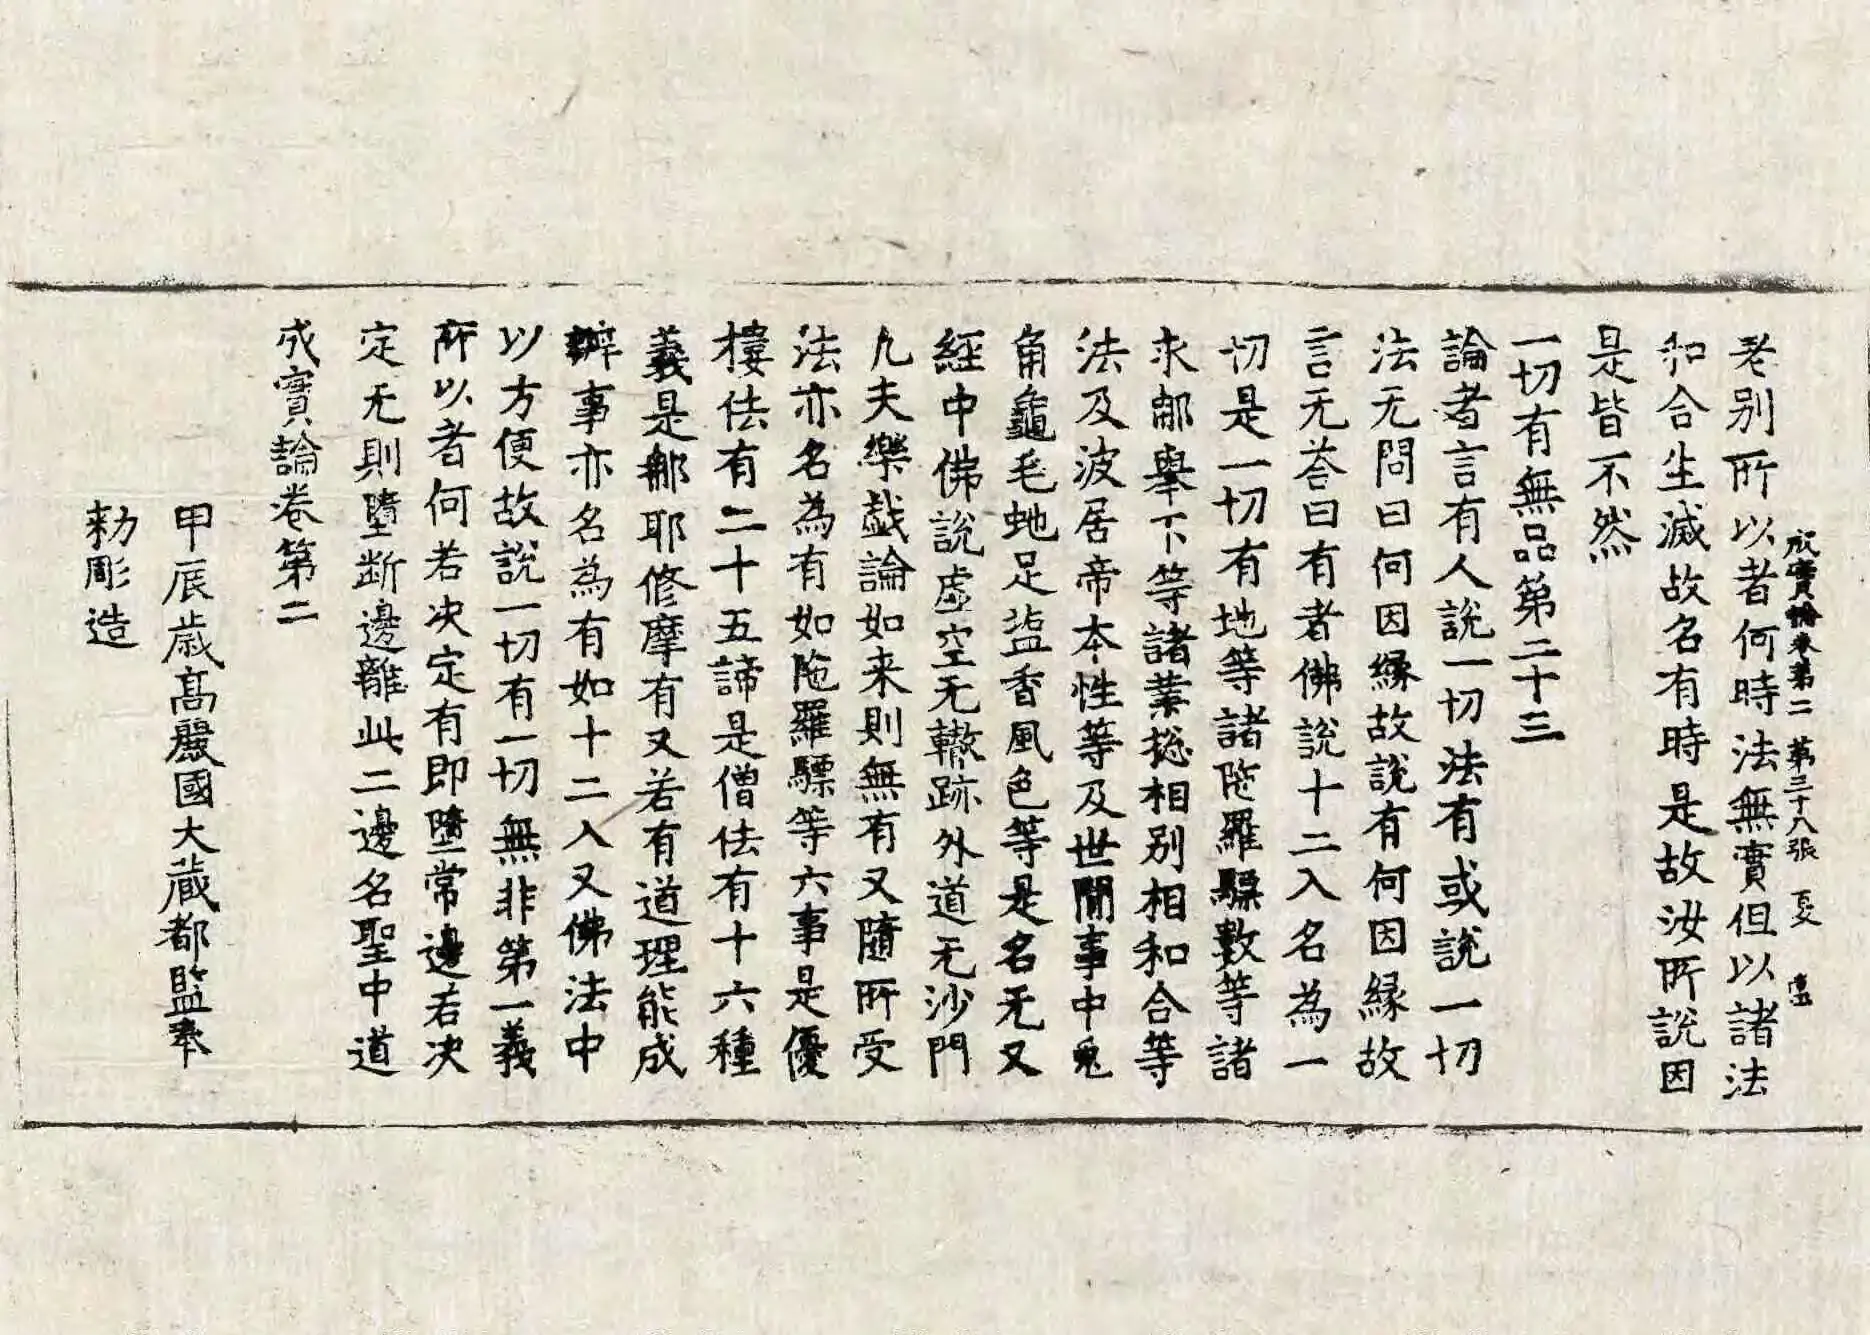 成實論卷第二 第三十八張 頁
老別所以者何時法無實但以諸法
和合生滅故名有時是故汝所說因
是皆不然
一切有無品第二十三
論者言有人說一切法有或說一切
法无問曰何因縁故說有何因縁故
言无荅曰有者佛說十二入名為一
切是一切有地等諸陁羅驃數等諸
求那舉下等諸業揔相別相和合等
法及波居帝本性等及世閒事中兔
角龜毛虵足塩香風色等是名无又
經中佛說虛空无轍跡外道无沙門
凡夫樂戱論如来則無有又隨所受
法亦名為有如陁羅驃等六事是優
樓佉有二十五諦是僧佉有十六種
義是那耶修摩有又若有道理能成
辦事亦名為有如十二入又佛法中
以方便故說一切有一切無非第一義
所以者何若決定有即墮常邊若決
定无則墮斷邊離此二邊名聖中道
成實論卷第二
甲辰歳高麗國大蔵都監奉
勑彫造